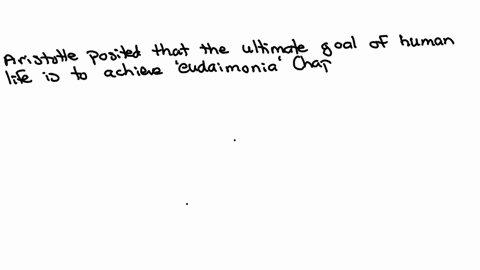 Aristotle posited that the ultimate goal of human
life is to achieve 'eudaimonia' Chap